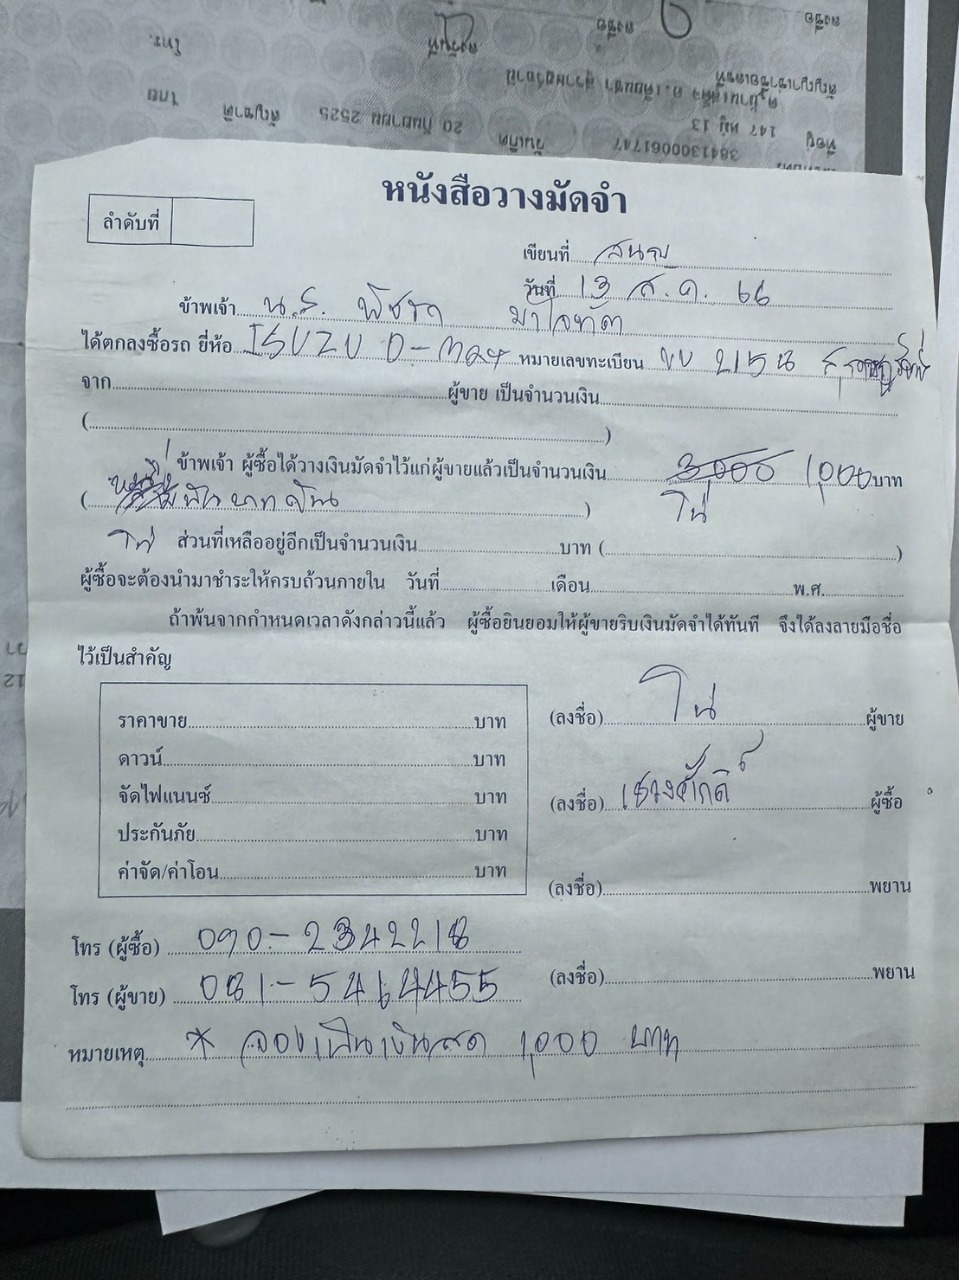 ลงชื่อ
ลงชื่อ
โทร.
สัญญาเช่าซื้อเลขที่
ต.บ้านเสด็จ อ.เคียนซา สุราษฎร์ธานี
ที่อยู่ 147 หมู่ 13
3841300061747 วันเกิด 20 กันยายน 2525 สัญชาติ ไทย
หนังสือวางมัดจำ
ลำดับที่
เขียนที่
วันที่ 13 ส.ค. 66
ข้าพเจ้า น.ส.
ได้ตกลงซื้อรถ ยี่ห้อ ISUZU D-max หมายเลขทะเบียน
จาก ผู้ขาย เป็นจำนวนเงิน
( )
ข้าพเจ้า ผู้ซื้อได้วางเงินมัดจำไว้แก่ผู้ขายแล้วเป็นจำนวนเงิน 3000 1,000 บาท
(หนึ่งพันบาทถ้วน) โน่
โน่ ส่วนที่เหลืออยู่อีกเป็นจำนวนเงิน บาท ( )
ผู้ซื้อจะต้องนำมาชำระให้ครบถ้วนภายใน วันที่ เดือน พ.ศ.
ถ้าพ้นจากกำหนดเวลาดังกล่าวนี้แล้ว ผู้ซื้อยินยอมให้ผู้ขายริบเงินมัดจำได้ทันที จึงได้ลงลายมือชื่อ
ไว้เป็นสำคัญ
ราคาขาย บาท
ดาวน์ บาท
จัดไฟแนนซ์ บาท
ประกันภัย บาท
ค่าจัด/ค่าโอน บาท
(ลงชื่อ) โน่ ผู้ขาย
(ลงชื่อ) ผู้ซื้อ
(ลงชื่อ) พยาน
(ลงชื่อ) พยาน
โทร (ผู้ซื้อ) 090-2342218
โทร (ผู้ขาย) 081-5414455
หมายเหตุ * จองเป็นเงินสด 1,000 บาท